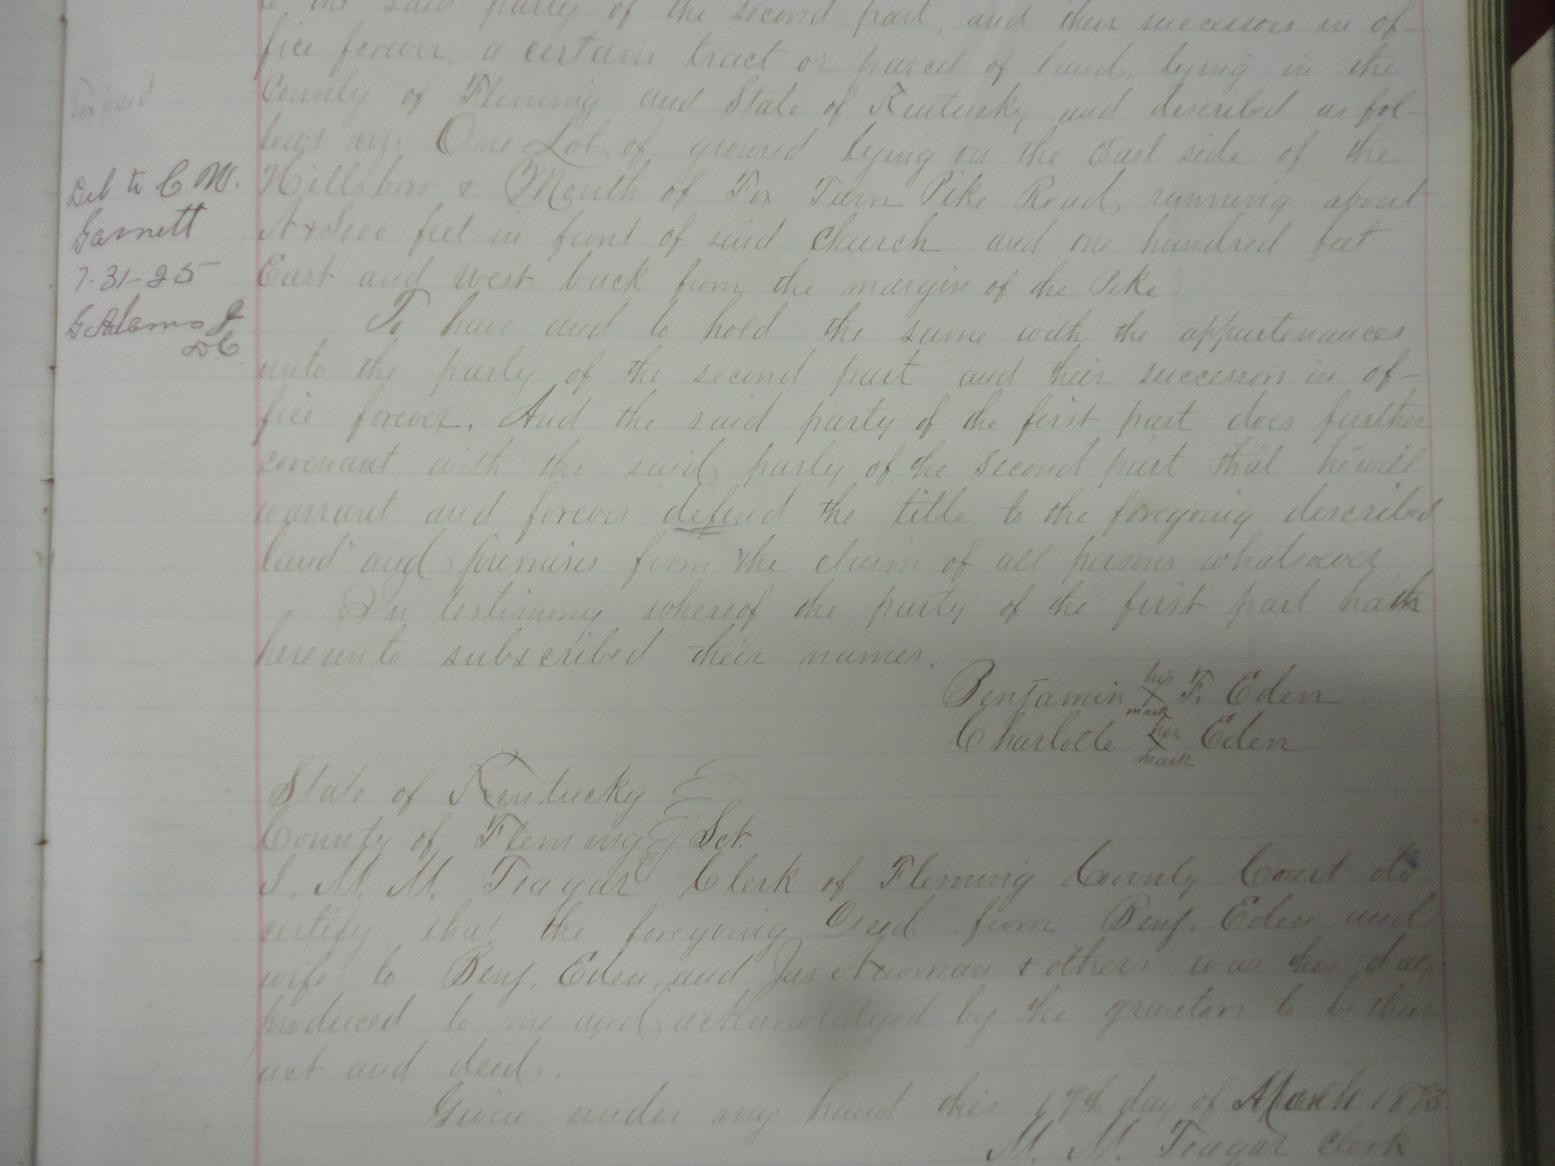 to the said party of the second part, and their successors in of-
fice forever, a certain tract or parcel of land, lying in the
Tax paid
County of Fleming and State of Kentucky and described as fol-
lows viz: One Lot of ground lying on the East side of the
Del to C. W.
Hillsboro & Mouth of Fox Turn Pike Road running about
Garnett
feet in front of said Church and one hundred feet
7-31-25
East and West back from the margin of the Pike
G. Adams Jr
D.C
To have and to hold the same with the appurtenances
unto the party of the second part and their successors in of-
fice forever. And the said party of the first part does further
covenant with the said party of the second part that he will
warrant and forever defend the title to the foregoing described
land and premises from the claim of all persons whatsoever
In testimony whereof the party of the first part hath
hereunto subscribed their names.
Benjamin his X mark F. Eden
Charlotte her X mark Eden
State of Kentucky
County of Fleming Sct.
I. M. M. Teagar Clerk of Fleming County Court do
certify that the foregoing Deed from Benj. Eden and
wife to Benj. Eden, and Jas Newman & others was this day
produced to me and acknowledged by the grantors to be their
act and deed.
Given under my hand this 17th day of March 1873
M. M. Teagar Clerk